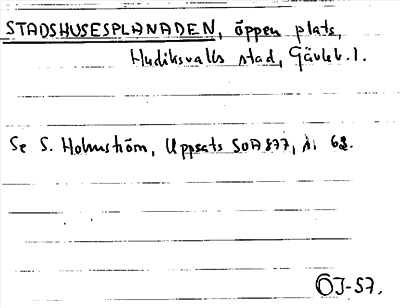 STADSHUSESPLANADEN, öppen plats,
Hudiksvalls stad, Gävleb. l.
Se S. Holmström, Uppsats SOA 877, s. 62.
ÖJ-57.